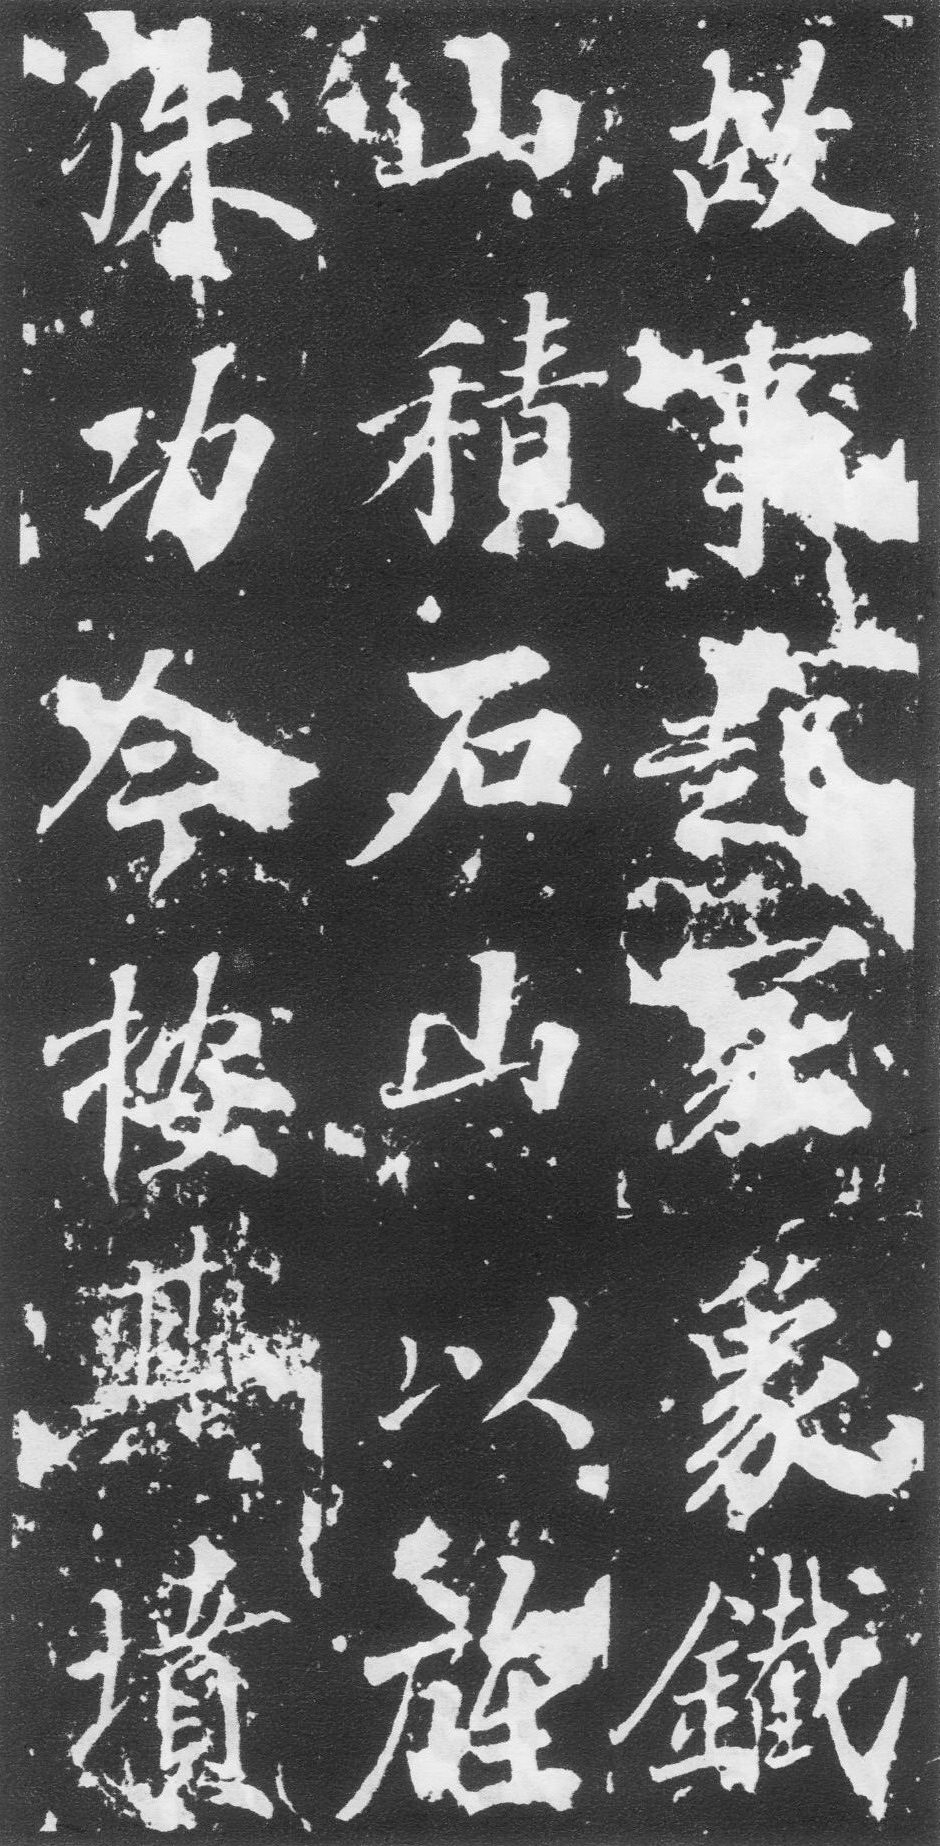 故事起冢象鐵
山積石山以旌
殊功今按其墳